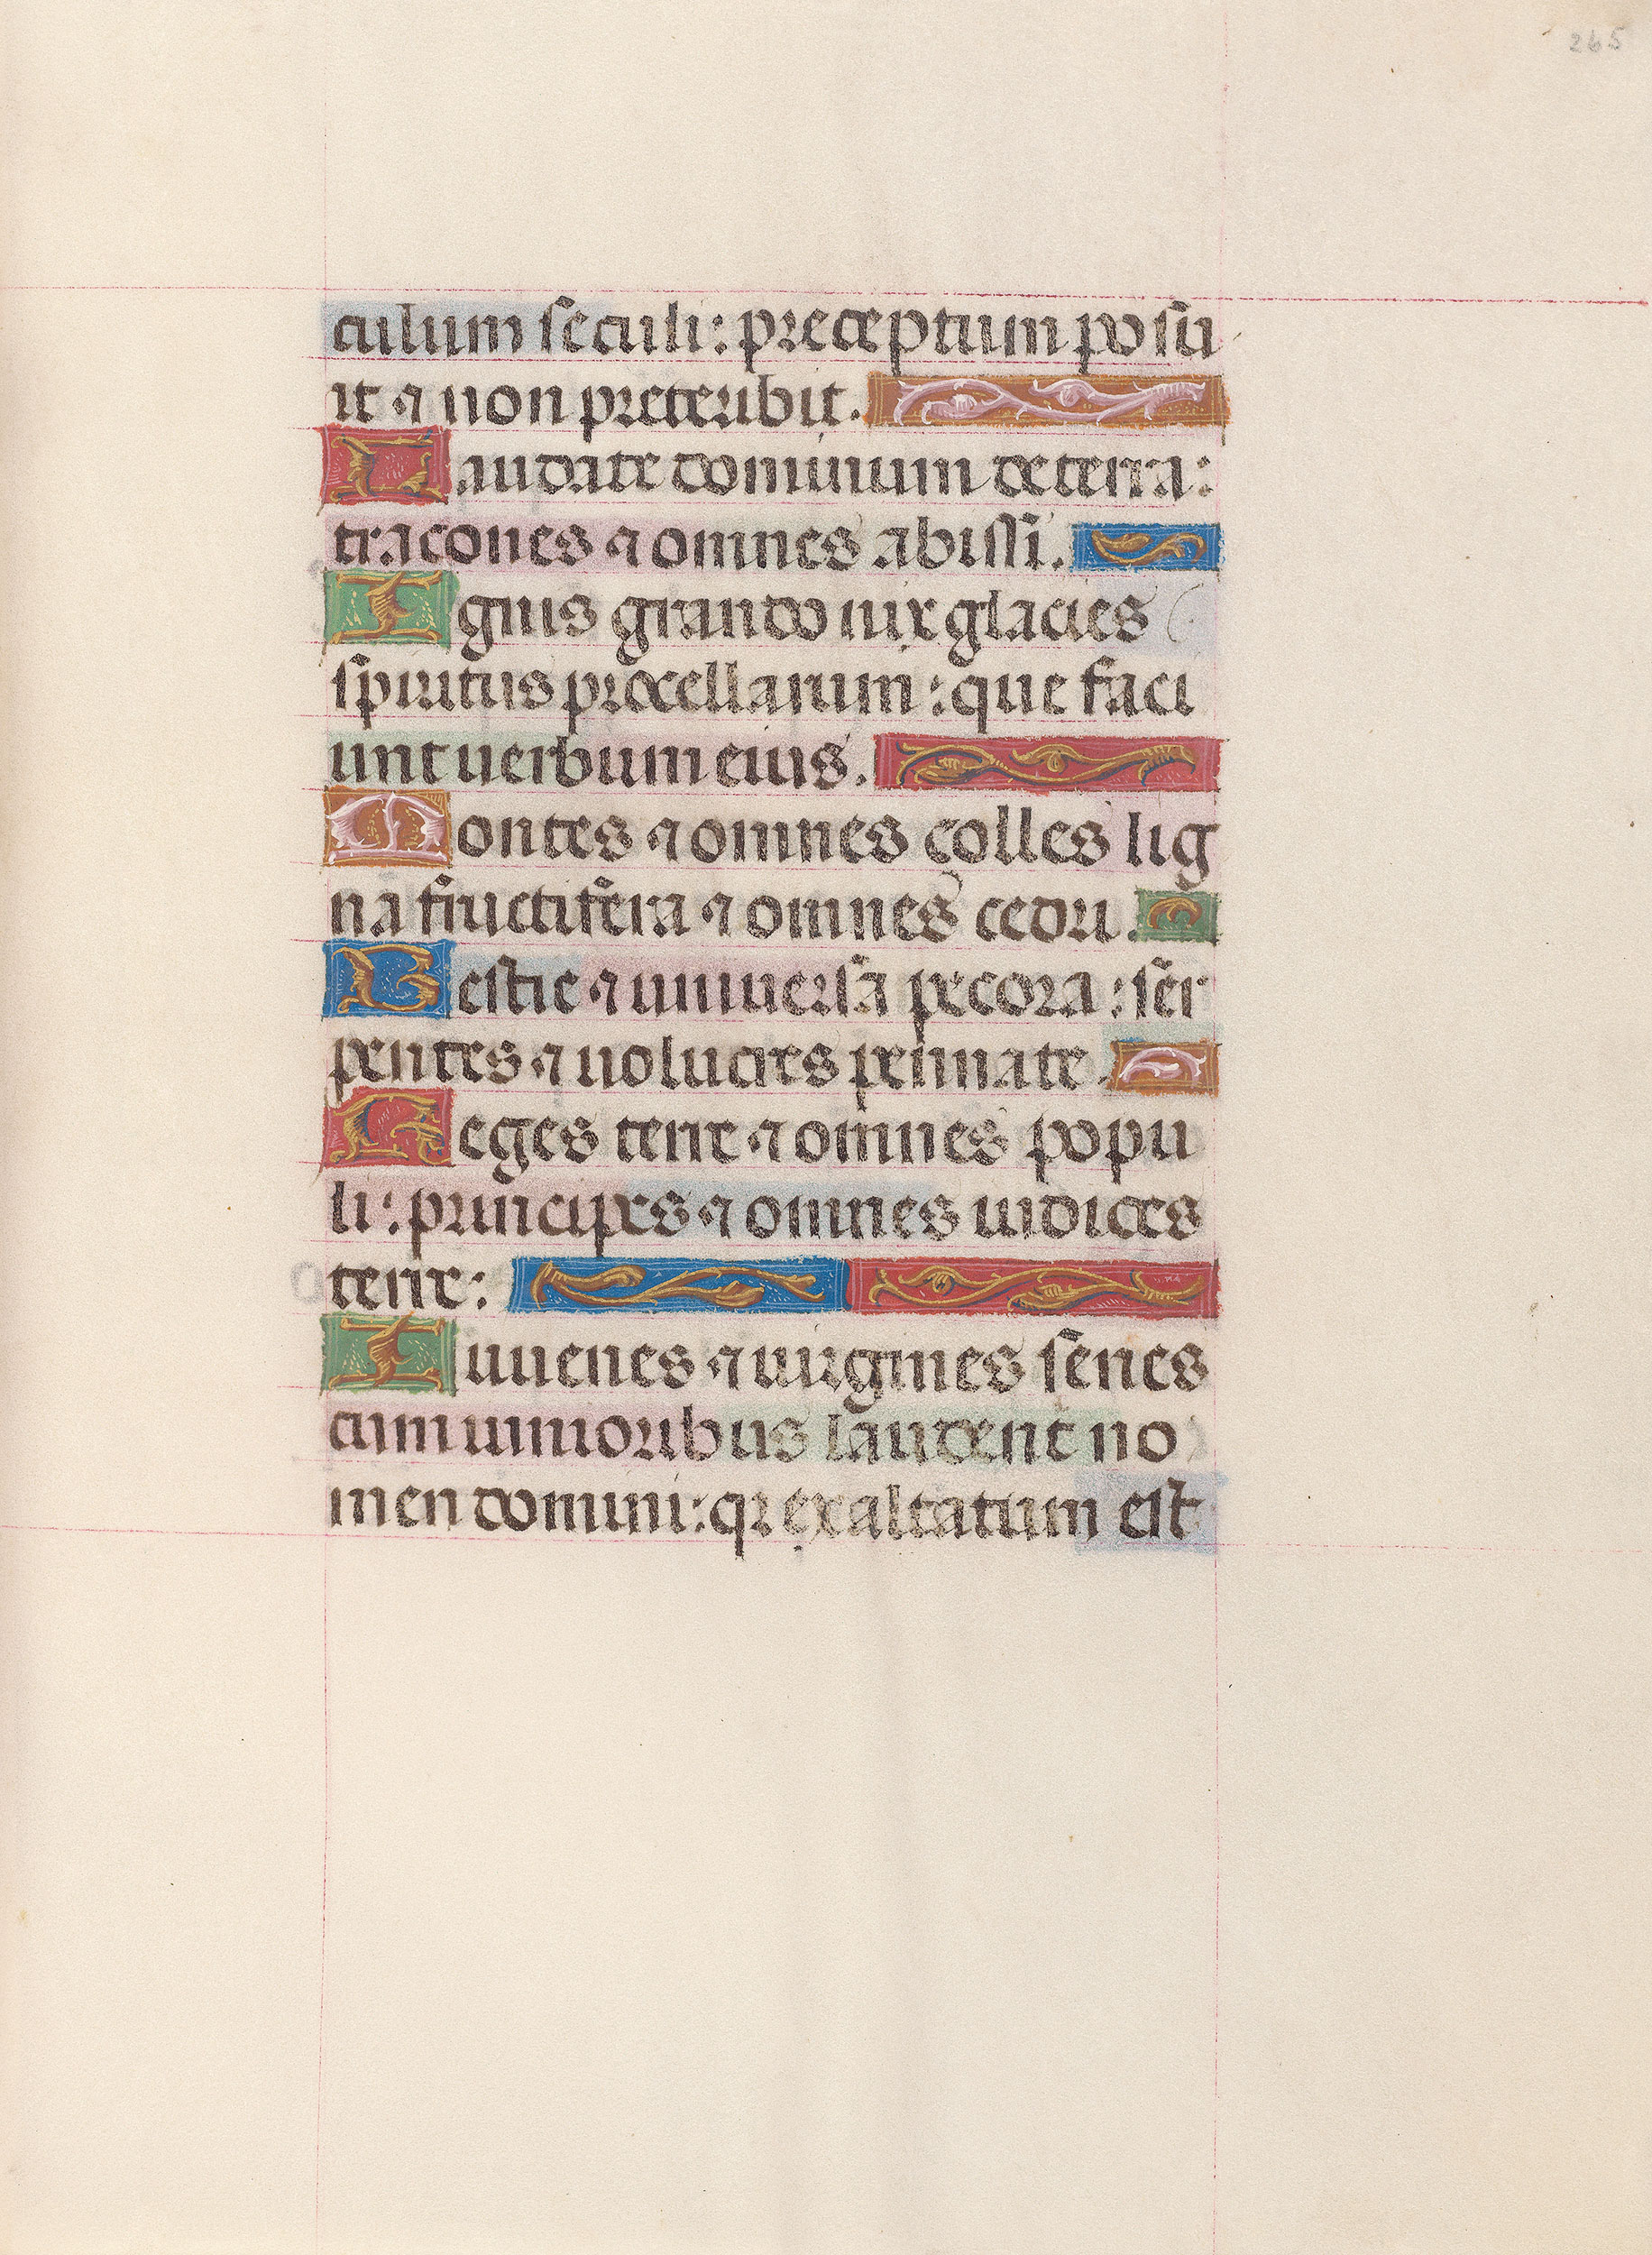 265
culum seculi: preceptum posu
it ⁊ non preteribit.
Laudate dominum de terra:
tracones ⁊ omnes abissi.
Ignis grando nix glacies
spiritus procellarum: que faci
unt uerbum eius.
Montes ⁊ omnes colles lig
na fructifera ⁊ omnes cedri.
Bestie ⁊ uniuersa pecora: ser
pentes ⁊ uolucres pennate.
Reges terre ⁊ omnes popu
li: principes ⁊ omnes iudices
terre:
Iuuenes ⁊ uirgines senes
cum iunioribus laudent no
men domini: qr exaltatum est